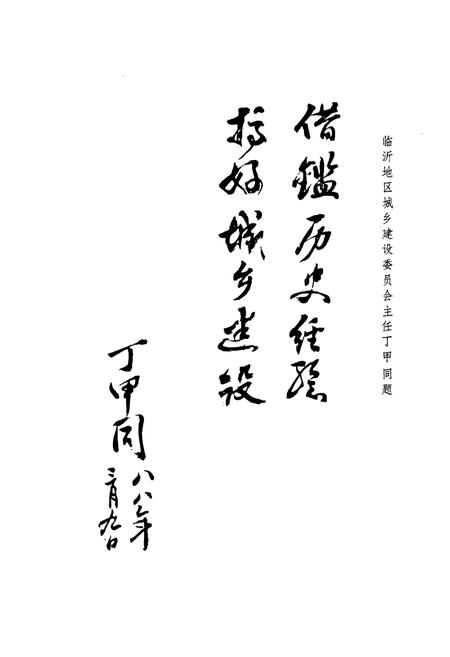 临沂地区城乡建设委员会主任丁甲同题
借鑑历史经验
搞好城乡建设
丁甲同
八八年
三月九日